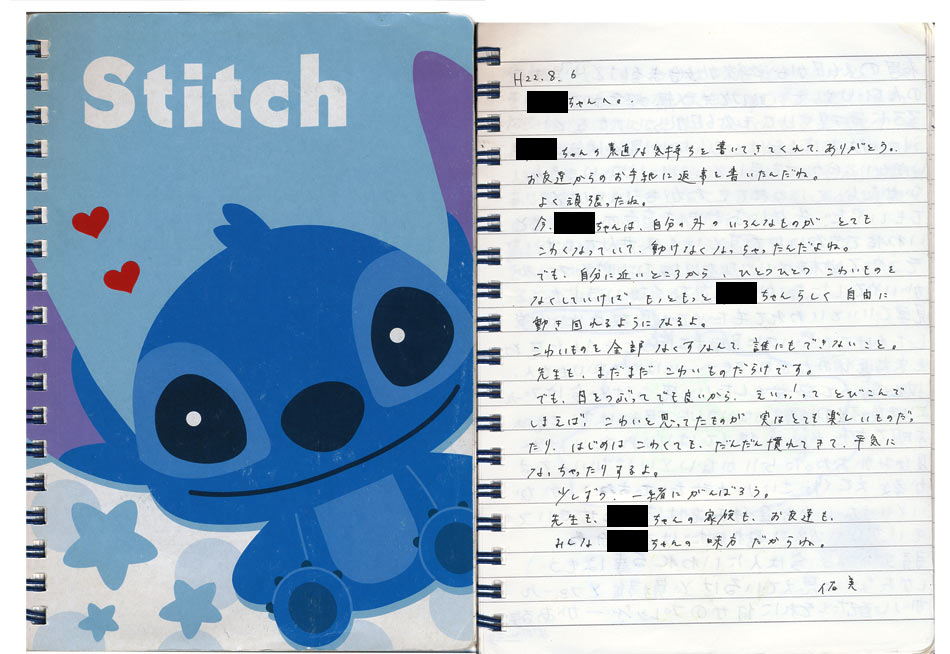 Stitch
H22.8.6
ちゃんへ。
ちゃんの素直な気持ちを書いてきてくれて、ありがとう。
お友達からのお手紙に返事を書いたんだね。
よく頑張ったね。
今、ちゃんは、自分の外のいろんなものが とても
こわくなっていて、動けなくなっちゃったんだよね。
でも、自分に近いところから、ひとつひとつ こわいものを
なくしていけば、もっともっと ちゃんらしく 自由に
動き回れるようになるよ。
こわいものを全部 なくすなんて、誰にもできないこと。
先生も、まだまだ こわいものだらけです。
でも、目をつぶってでも良いから、えいっ!って とびこんで
しまえば、こわいと思ってたものが 実はとても楽しいものだっ
たり、はじめは こわくても、だんだん慣れてきて、平気に
なっちゃったりするよ。
少しずつ、一緒にがんばろう。
先生も、ちゃんの家族も、お友達も、
みんな ちゃんの 味方 だからね。